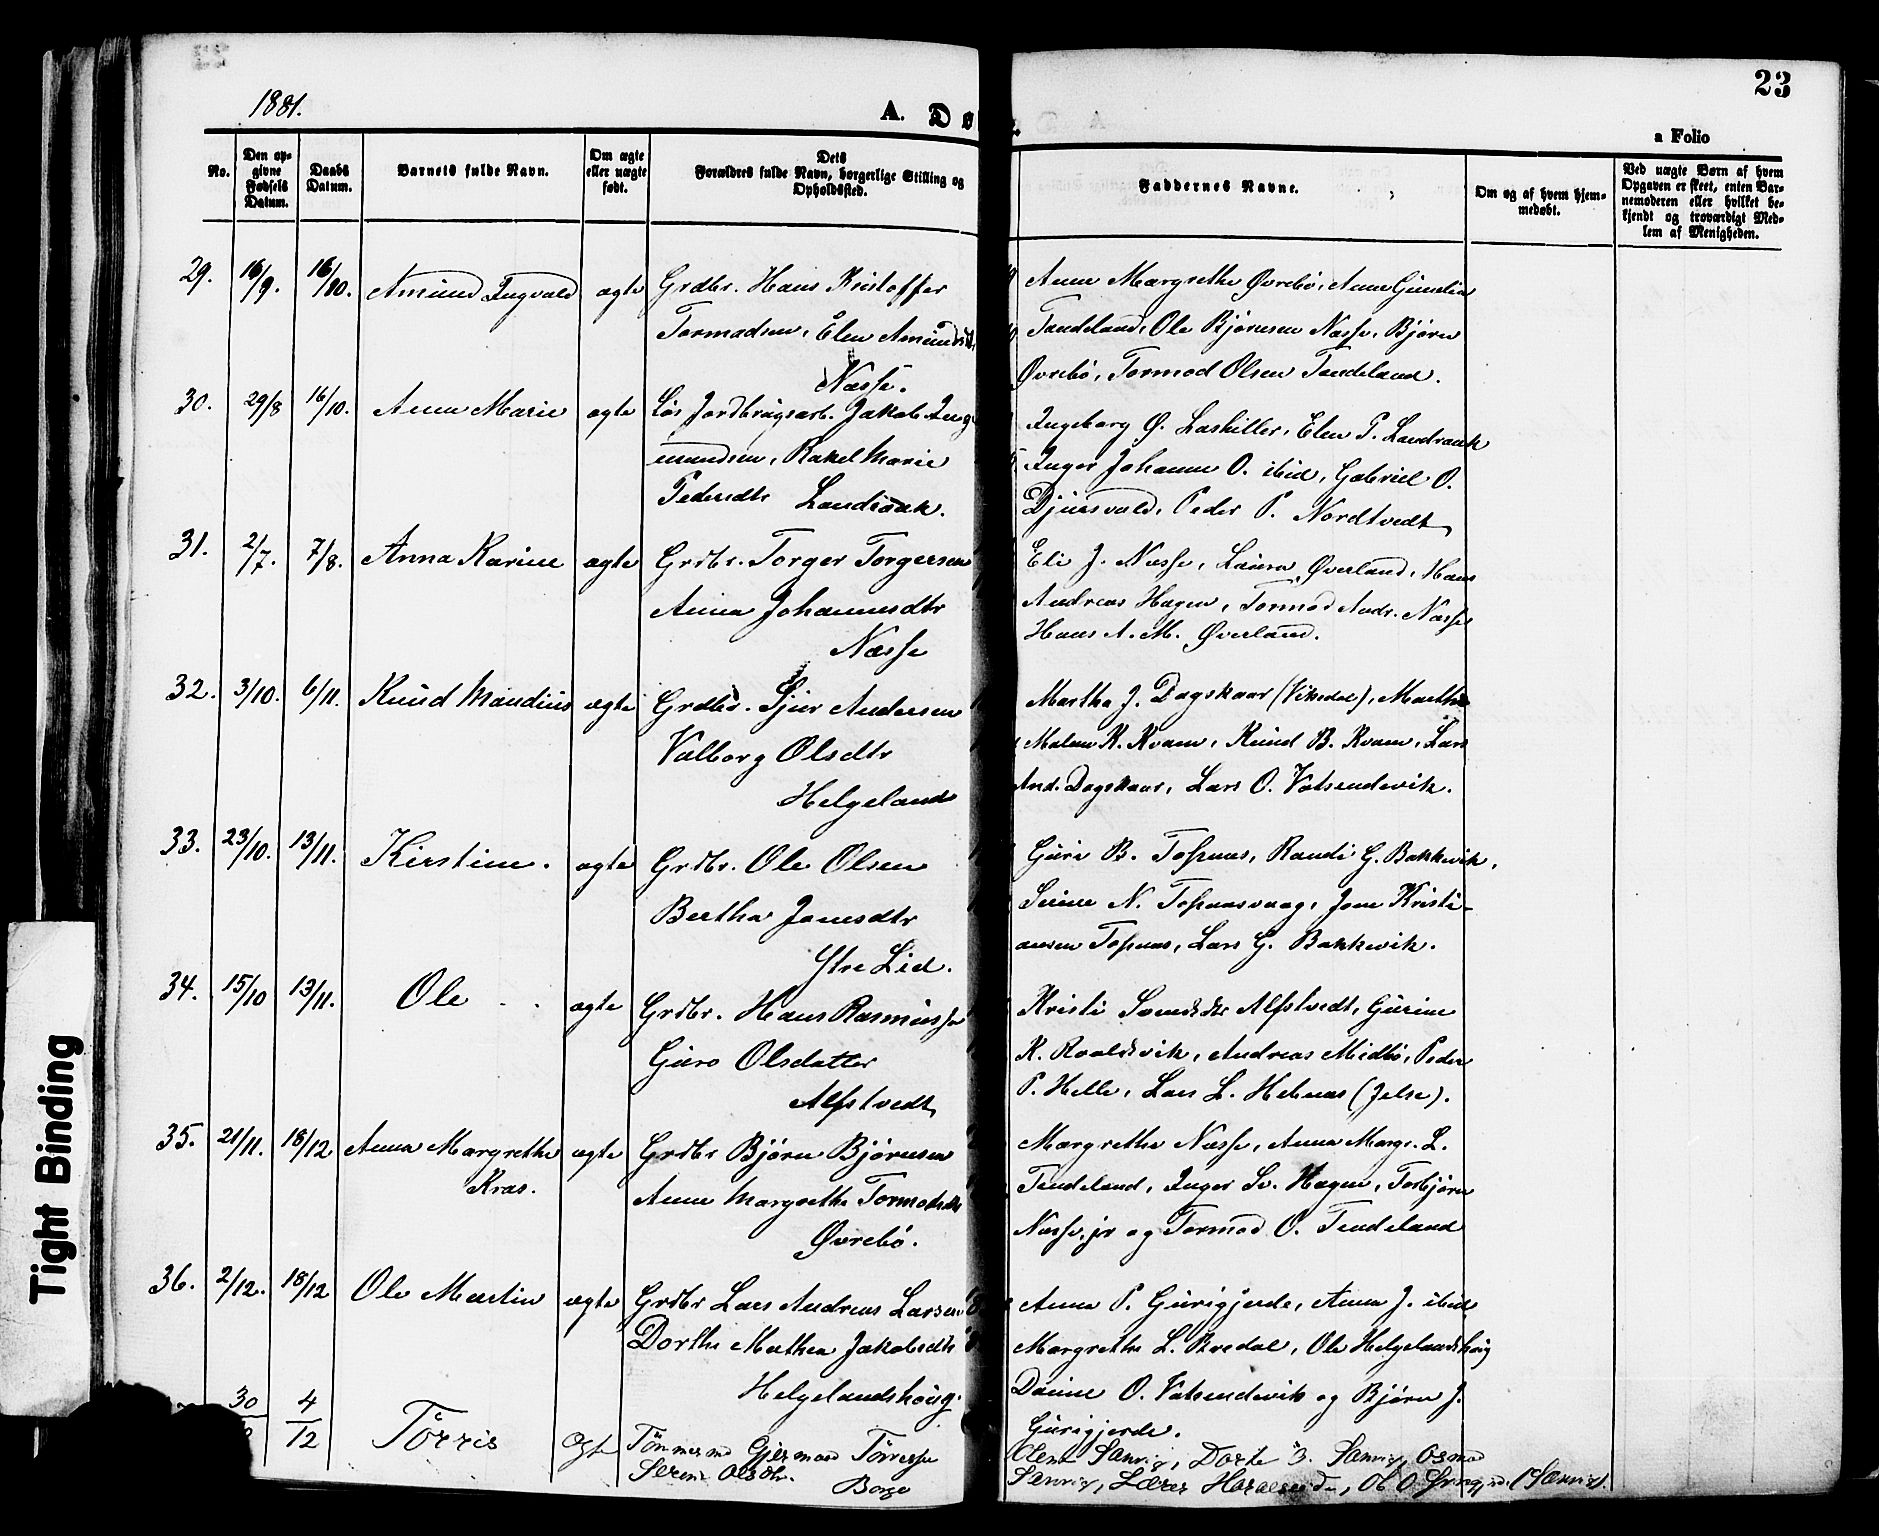 23
1881.
A. Dø
a Folio
No.
Den op-
givne
Fødsels
Datum.
Daabs
Datum.
Barnets fulde Navn.
Om ægte
eller uægte
født.
Dets
Forældres fulde Navn, borgerlige Stilling og
Opholdssted.
Faddernes Navne.
Om og af hvem hjem-
medøbt.
Ved uægte Børn af hvem
Opgaven er skeet, enten Bar-
nemoderen eller hvilket be-
kjendt og troværdigt Med-
lem af Menigheden.
29. 16/9. 16/10. Amund Ingvald ægte Grdbr. Hans Kristoffer
Tormodsen, Elen Amundsdtr
Næsse.
Anne Margrethe Øvrebø, Anne Gundlin
Tendeland, Ole Bjørnsen Næsse, Bjørn
Øvrebø, Tormod Olsen Tendeland.
30. 29/8 16/10. Anna Marie ægte Løs Jordbrugsarb. Jakob Ing-
mundsen, Rakel Marie
Pedersdtr Landraak.
Ingeborg Ø. Laskiller, Elen P. Landraak
Inger Johanne O. ibid, Gabriel O.
Djursvold, Peder P. Nordtvedt
31. 2/7. 7/8. Anna Karine ægte Grdbr. Torger Torgersen
Anna Johannesdtr
Næsse
Eli J. Næsse, Laura Øverland, Hans
Andreas Hagen, Tormod Andr. Næsse
Hans A. M. Øverland.
32. 3/10. 6/11. Knud Mandius ægte Grdbr. Sjur Andersen
Valborg Olsdtr
Helgeland
Martha J. Dagskaar (Vikedal), Marthe
Malene K. Kvam, Knud B. Kvam, Lars
And. Dagskaar, Lars O. Vatsendevik.
33. 23/10. 13/11. Kirstine. ægte Grdbr. Ole Olsen
Bertha Jonesdtr
Ytre Lid.
Guri B. Tosnæs, Randi G. Bakkevik,
Serine N. Tosnæsvaag, Jone Kristi-
ansen Tosnæs, Lars G. Bakkevik.
34. 15/10 13/11. Ole ægte Grdbr. Hans Rasmussen
Guro Olsdatter
Alfstvedt
Kristi Svendsdtr Alfstvedt, Gurine
K. Roaldsvik, Andreas Midbø, Peder
P. Helle, Lars L. Hebnæs (Jelse).
35. 21/11. 18/12 Anna Margrethe ægte Grdbr Bjørn Bjørnsen
Kras. Anne Margrethe Tormodsdtr
Øvrebø.
Margrethe Næsse, Anna Margr. L.
Tendeland, Inger Sv. Hagen, Torbjørn
Næsse jr og Tormod O. Tendeland
36. 2/12. 18/12 Ole Martin ægte Grdbr Lars Andreas Larsen
Dorthe Mathea Jakobsdtr
Helgelandshoug.
Anna P. Gurigjerde, Anna J. ibid,
Margrethe L. Kvedal, Ole Helgelandshoug
Daniel O. Vatsendevik og Bjørn J.
Gurigjerde.
30 4/12 Tørris ægte Tømmermd Gjermund Tørresen
Serine Olsdtr.
Borge
Dorte
Tight Binding